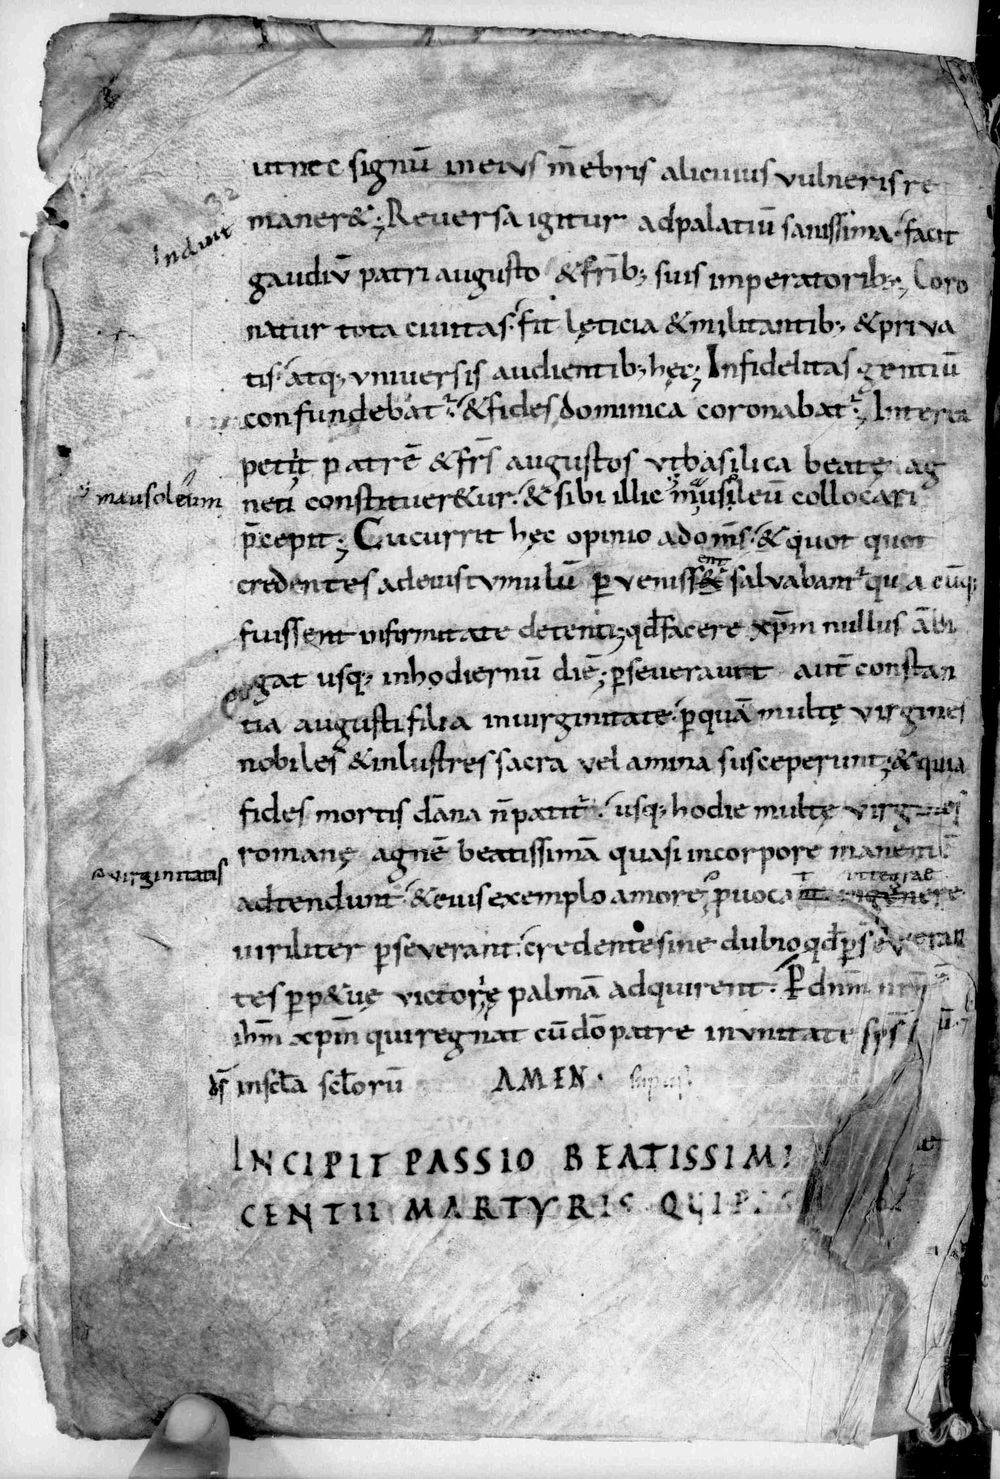 ut nec signū in eius m̄ebris alicuius vulneris re
32
maner&; Reuersa igitur ad palatiū sanissima· facit
Induit
gaudiū patri augusto &fr̄ib; suis imperatorib; Coro
natur tota ciuitas· fit lęticia &militantib; &priva
tis· atq; vniuersis audientib; hęc; Infidelitas gentiū
confundebat᷑· &fides dominica coronabat᷑; Interea
petiit patrē &fr̄s augustos vt basilica beatę ag
mausoleum
neti constituer&ur· & sibi illic musileū collocari
p̄cepit; Cucurrit hęc opinio ad om̄s· & quot quot
ent
credentes ad eius tumulū p̱ veniss& salvabant᷑ qua cūq;
fuissent infirmitate detenti; qđ facere xp̄m nullus ābi
gat usq; in hodiernū diē; p̱severavit aut̄ constan
tia augusti filia in uirginitate· p̱ quā multę virgines
nobiles &inlustres sacra velamina susceperunt; & quia
fides mortis dāna n̄ patit᷑· usq; hodie multę virgines
romanę agnē beatissimā quasi in corpore manentē
virginitatis
integrae
adtendunt· & eius exemplo amore ꝓuocant
uiriliter p̱severant· credentes sine dubio qđ p̱severan
tes p̱p&uę victorię palmā adquirent· P̱ dn̄m nr̄m
ih̄m xp̄m qui regnat cū dō patre in vnitate sp̄s
in sc̄la sc̄lorū AMEN·
INCIPIT PASSIO BEATISSIMI
CENTII MARTYRIS QUI